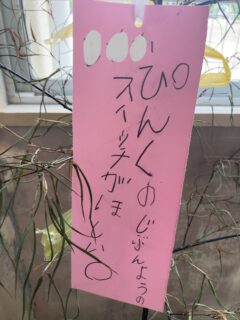 ぴんくのじぶんようの
スイッチがほしい